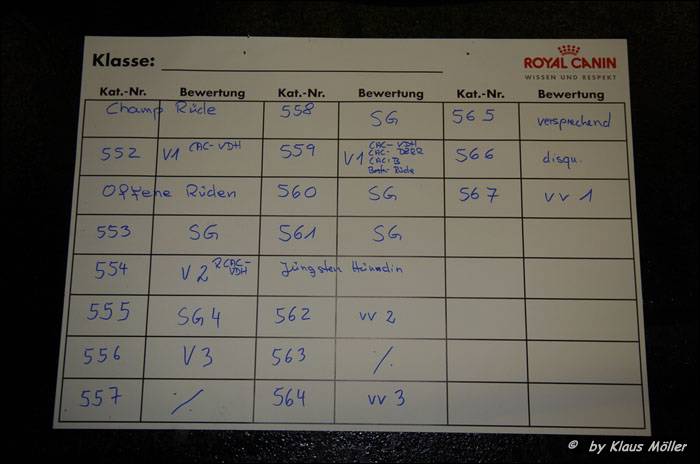 Klasse:
ROYAL CANIN
WISSEN UND RESPEKT
Kat.-Nr. Bewertung Kat.-Nr. Bewertung Kat.-Nr. Bewertung
Champ Rüde 558 SG 565 versprechend
552 V1 CAC-VDH 559 V1 CAC-VDH CAC- CACIB Rüde 566 disqu.
Offene Rüden 560 SG 567 vv 1
553 SG 561 SG
554 V2 RCAC-VDH Jüngsten Hündin
555 SG 4 562 vv 2
556 V3 563 ./.
557 ./. 564 vv 3
© by Klaus Möller